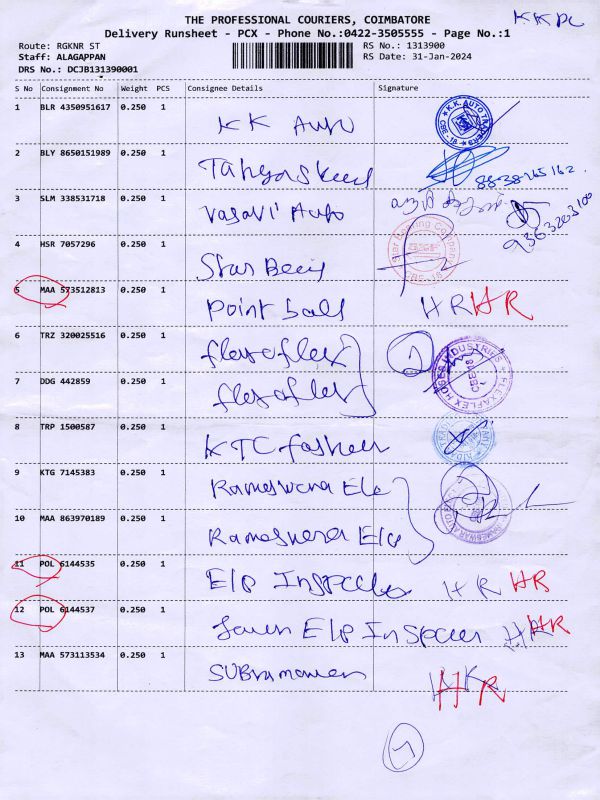 THE PROFESSIONAL COURIERS, COIMBATORE
KK PC
Delivery Runsheet - PCX - Phone No.:0422-3505555 - Page No.:1
Route: RGKNR ST RS No.: 1313900
Staff: ALAGAPPAN RS Date: 31-Jan-2024
DRS No.: DCJB131390001
S No Consignment No Weight PCS Consignee Details Signature
1 BLR 4350951617 0.250 1 KK Auto
K.K. AUTO TRADERS CBE-18
2 BLY 8650151989 0.250 1 88-38-265162
3 SLM 338531718 0.250 1 Vasavi Auto 9363203100
4 HSR 7057296 0.250 1 Star Beeis
Star Bearing Company CBE-18
5 MAA 573512813 0.250 1 Point ball HR HR
6 TRZ 320025516 0.250 1 flexoflex 2
FLEXAFLEX HOSES INDUSTRIES CBE 18
7 DDG 442859 0.250 1 flexoflex
8 TRP 1500587 0.250 1 KTC fashen
9 KTG 7145383 0.250 1 Rameswara Ele
10 MAA 863970189 0.250 1 Rameswara Ele
11 POL 6144535 0.250 1 E/P Inspector HR HR
12 POL 6144537 0.250 1 E/P Inspector HR HR
13 MAA 573113534 0.250 1 Subramanian HR
7